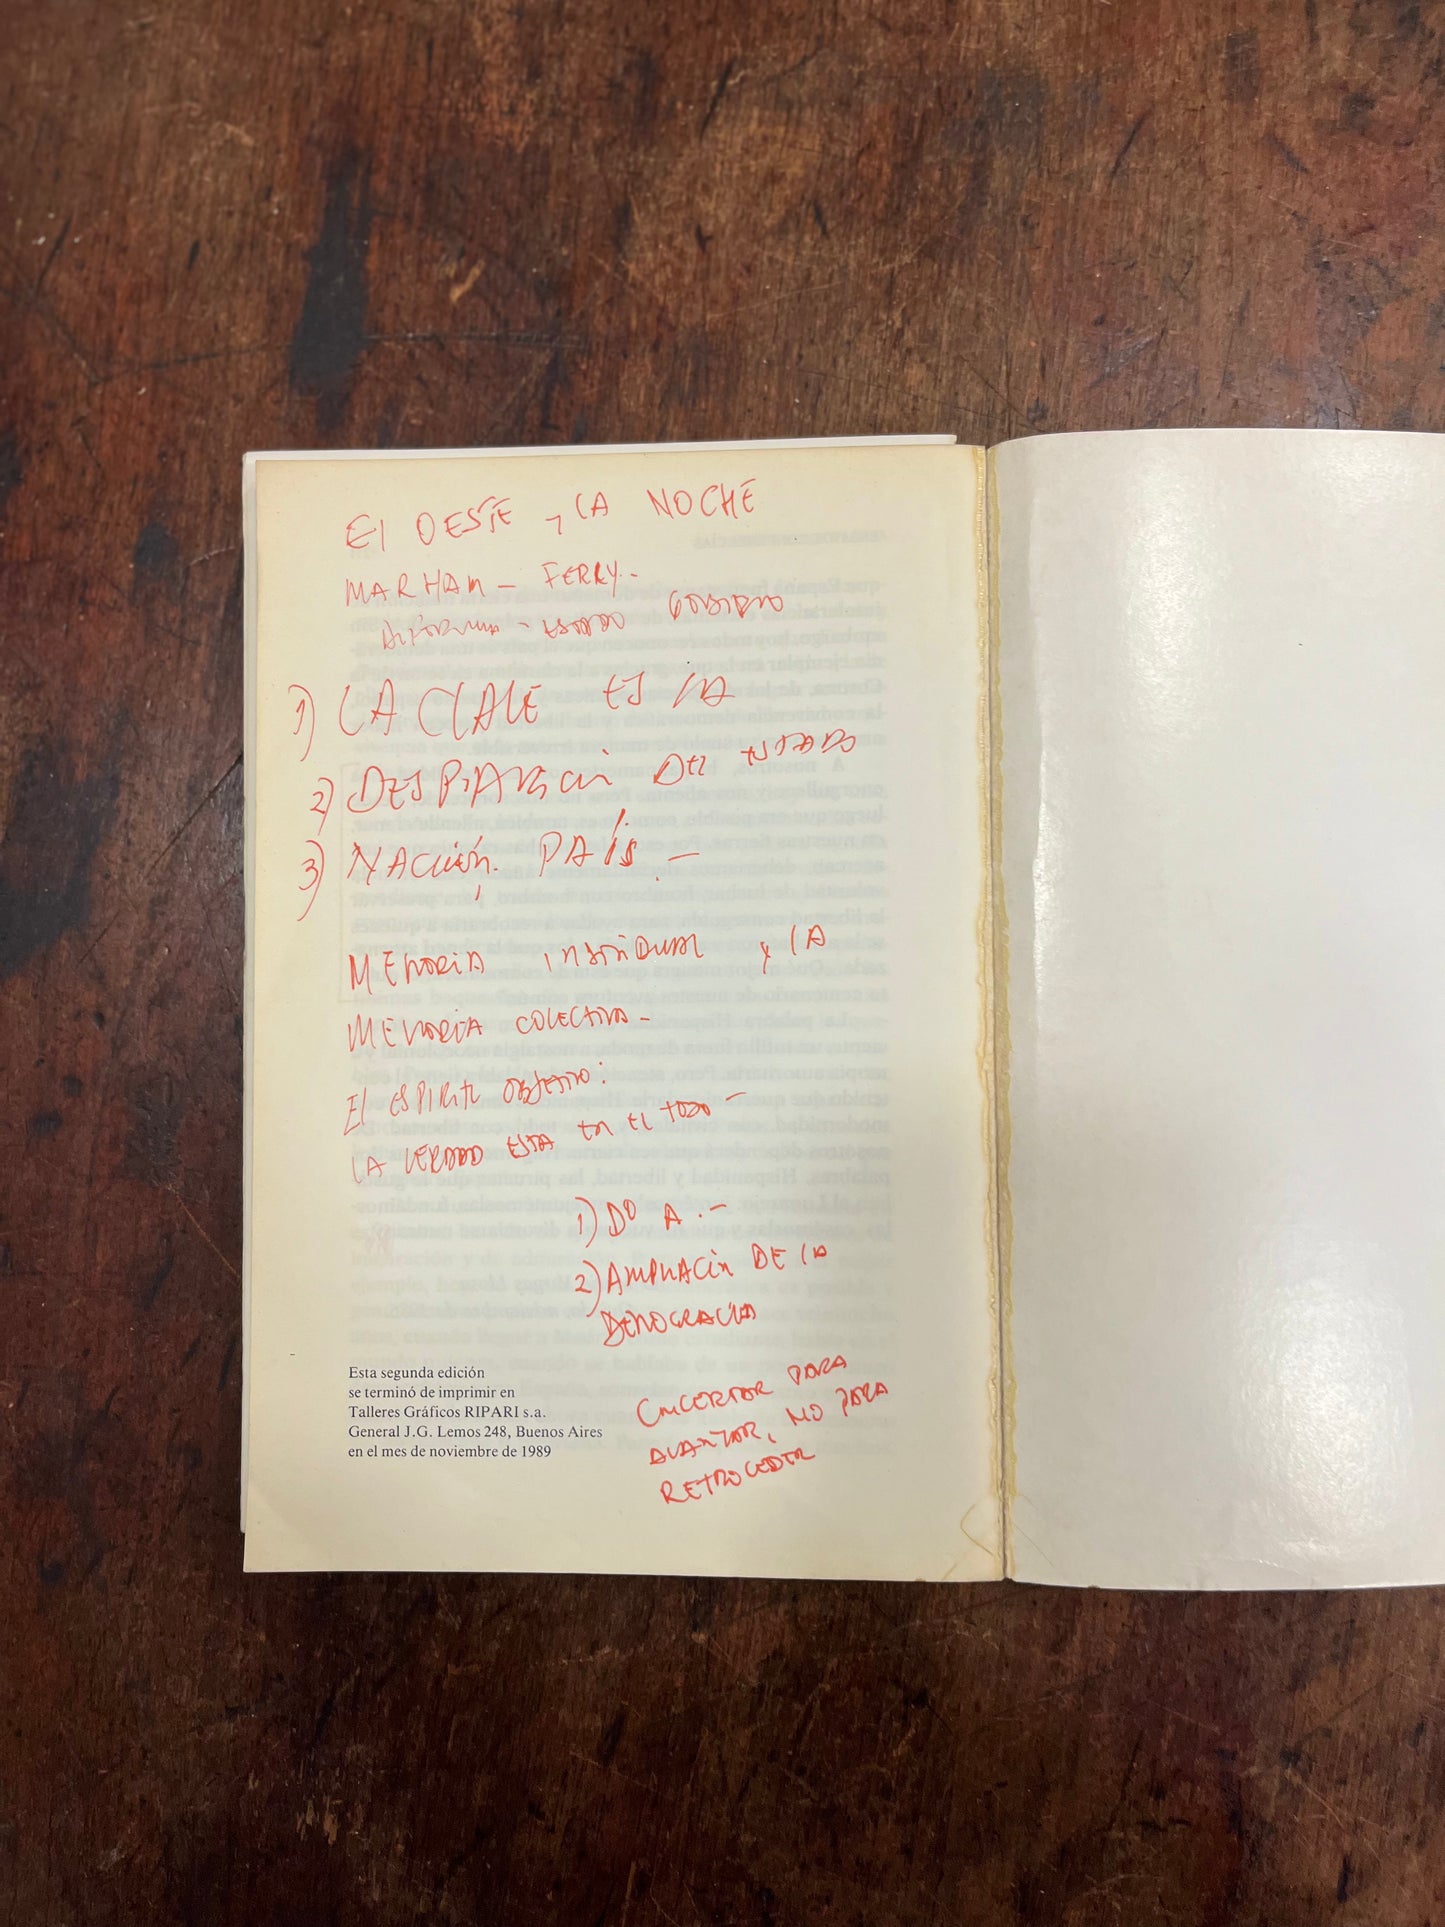 El OESTE y LA NOCHE
MARHAM - FERRY.-
ESTADO GOBIERNO
1) LA CLAVE ES LA
2) DEL ESTADO
3) NACIÓN. PAÍS -
MEMORIA INDIVIDUAL y LA
MEMORIA COLECTIVA -
El ESPIRITU OBJETIVO:
LA VERDAD ESTA EN EL TODO -
1) DO A :-
2) AMPLIACIÓN DE LA
DEMOCRACIA
CONCERTAR PARA
AVANZAR, NO PARA
RETROCEDER
Esta segunda edición
se terminó de imprimir en
Talleres Gráficos RIPARI s.a.
General J.G. Lemos 248, Buenos Aires
en el mes de noviembre de 1989